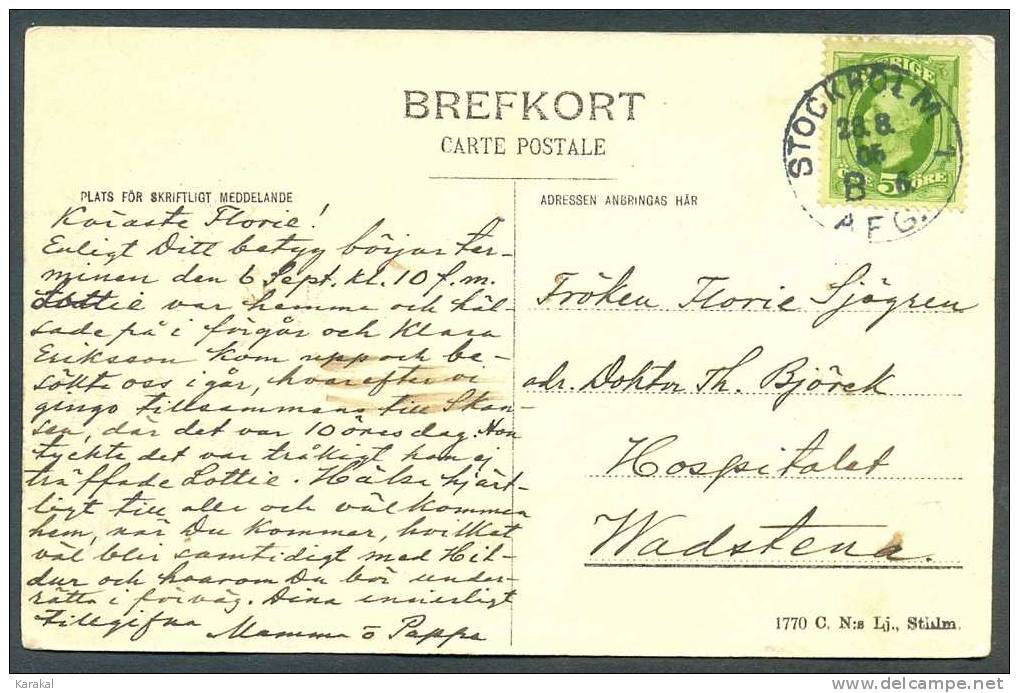 BREFKORT
CARTE POSTALE
PLATS FÖR SKRIFTLIGT MEDDELANDE
Käraste Florie!
Enligt Ditt betyg börjar ter-
minen den 6 Sept. kl. 10 f.m.
Lottie var hemma och häl-
sade på i förgår och Klara
Eriksson kom upp och be-
sökte oss i går, hvarefter vi
gingo tillsammans till Skan-
sen, där det var 10 öres dag. Hon
tyckte det var tråkigt hon ej
träffade Lottie. Hälsa hjärt-
ligt till alla och välkommen
hem, när Du kommer, hvilket
väl blir samtidigt med Hil-
dur och hvarom Du bör under-
rätta i förväg. Dina innerligt
tillgifna Mamma o Pappa
SVERIGE
5 ÖRE
STOCKHOLM 1
28.8.
06
B 6
AFG.
ADRESSEN ANBRINGAS HÄR
Fröken Florie Sjögren
adr. Doktor Th. Björck
Hospitalet
Wadstena.
1770 C. N:s Lj., Sthlm.
Karakal
delcampe.net